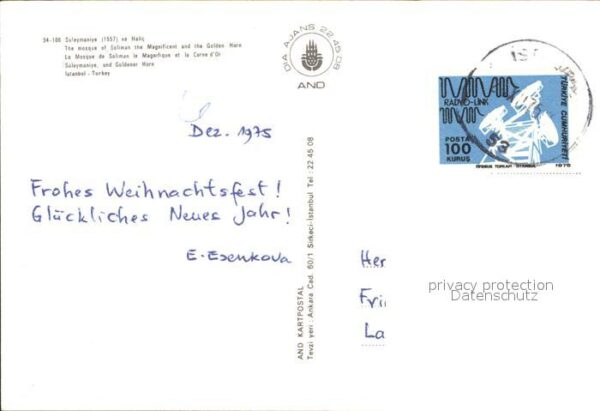 34-108 Süleymaniye (1557) ve Haliç
The mosque of Soliman the Magnificent and the Golden Horn
La Mosque de Soliman le Magnifique et la Corne d'Or
Suleymaniye, und Goldener Horn
Istanbul - Turkey
DIA AJANS 22 45 08
AND
Dez. 1975
Frohes Weihnachtsfest!
Glückliches Neues Jahr!
E. Esenkova
AND KARTPOSTAL
Tevzi yeri: Ankara Cad. 60/1 Sirkeci-İstanbul Tel: 22 45 08
RADYO-LİNK
POSTA
100
KURUŞ
TÜRKİYE CUMHURİYETİ
1975
İS
Her
Fri
La
privacy protection
Datenschutz